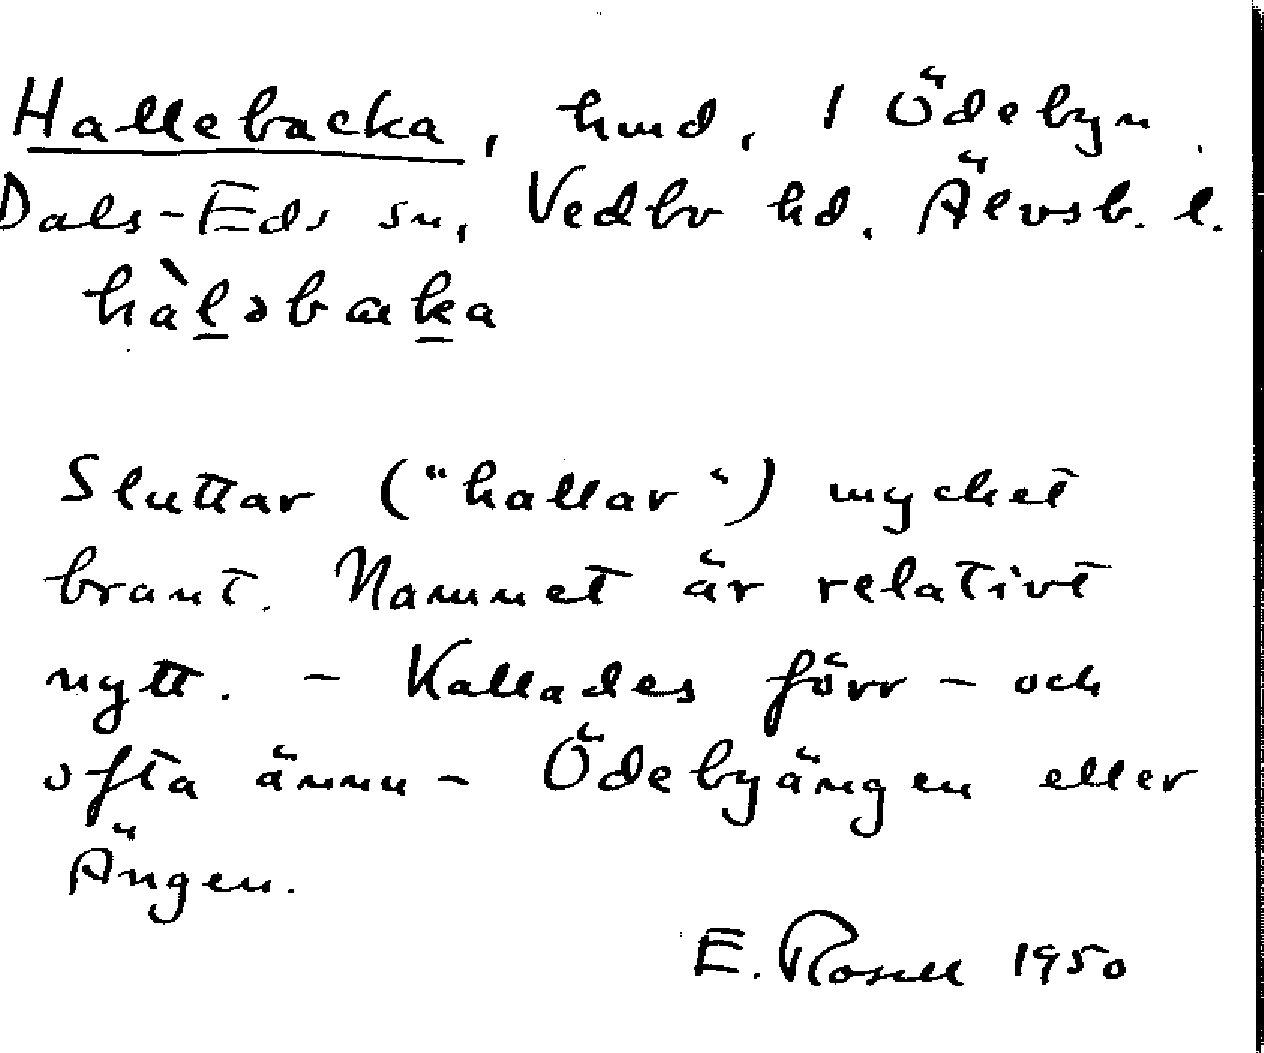 Hallebacka, hmd, 1 Ödebyn.
Dals-Eds sn, Vedbo hd, Älvsb. l.
hàlǝbaka
Sluttar ("hallar") mycket
brant. Namnet är relativt
nytt. - Kallades förr - och
ofta ännu - Ödebyängen eller
Ängen.
E. Rosell 1950